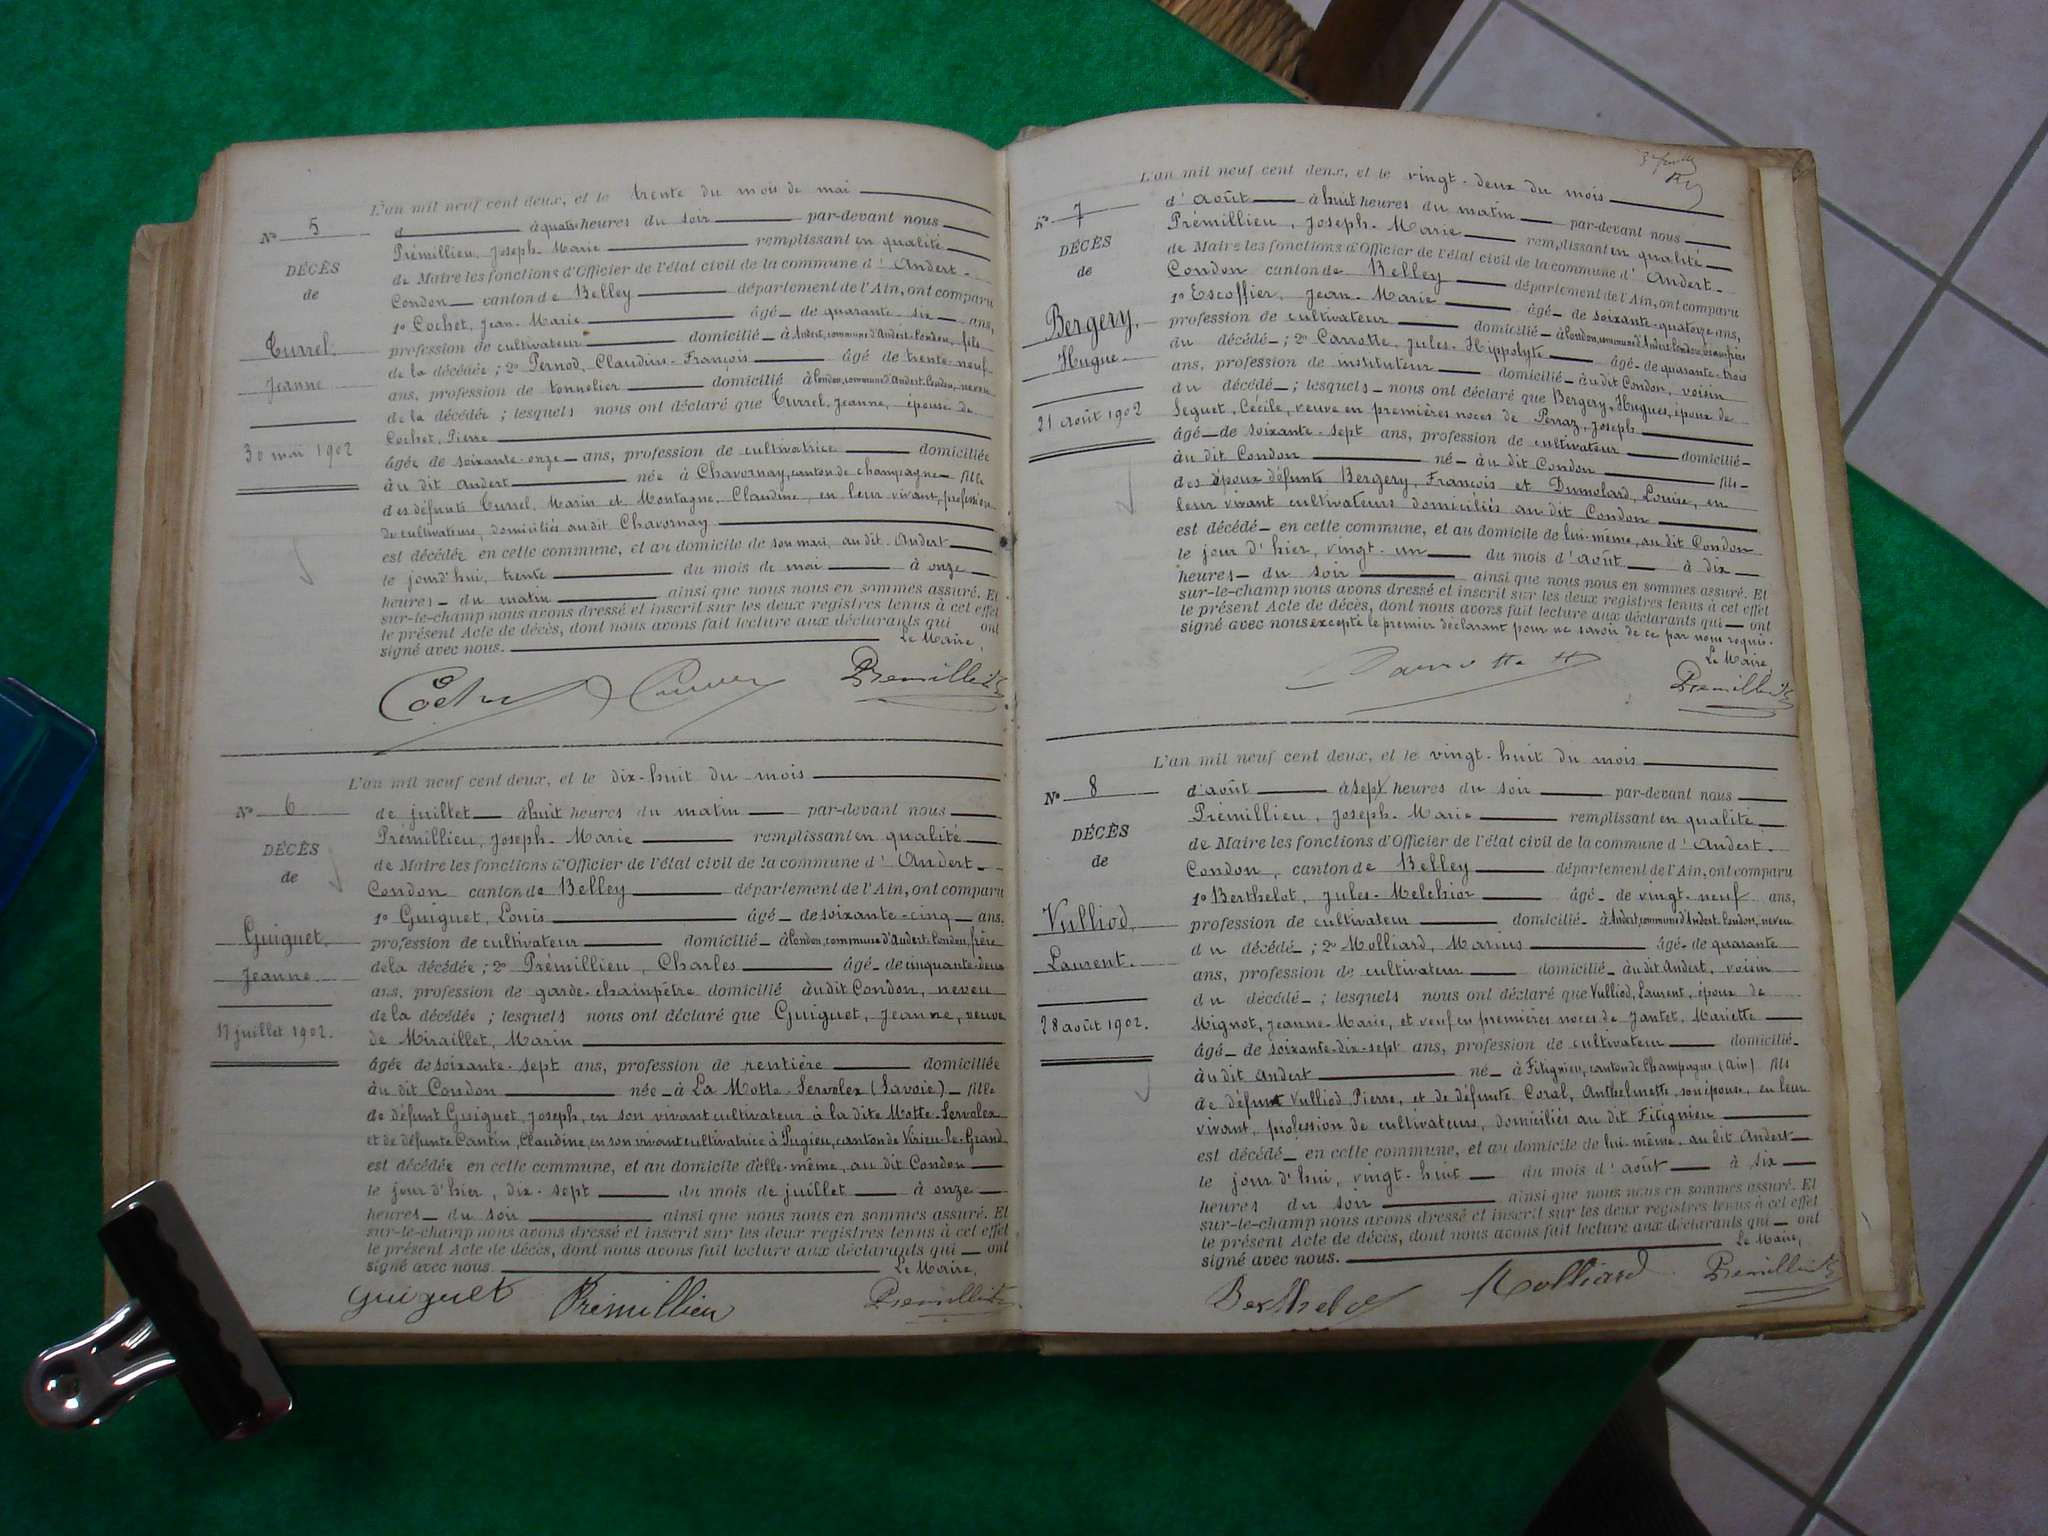 L'an mil neuf cent deux, et le trente du mois de mai
N° 5
d à quatre heures du soir par-devant nous
Prémillieu, Joseph-Marie remplissant en qualité
DÉCÈS
de Maire les fonctions d'Officier de l'état civil de la commune d' Andert-
de
Condon canton de Belley département de l'Ain, ont comparu
1° Cochet, Jean-Marie âgé de quarante-six ans,
Turrel
profession de cultivateur domicilié à Andert, commune d'Andert-Condon, fils
Jeanne
de la décédée ; 2° Pernod, Claudius-François âgé de trente-neuf
ans, profession de tonnelier domicilié à Condon, commune d'Andert-Condon, neveu
de la décédée ; lesquels nous ont déclaré que Turrel, Jeanne, épouse de
Cochet, Pierre
30 mai 1902
âgée de soixante-onze ans, profession de cultivatrice domiciliée
à u dit Andert née à Chavornay, canton de Champagne fille
des défunts Turrel, Marin et Montagne, Claudine, en leur vivant, profession
de cultivateurs, domiciliés au dit Chavornay
est décédée en cette commune, et au domicile de son mari, au dit Andert
le jourd'hui, trente du mois de mai à onze
heures du matin ainsi que nous nous en sommes assuré. Et
sur-le-champ nous avons dressé et inscrit sur les deux registres tenus à cet effet
le présent Acte de décès, dont nous avons fait lecture aux déclarants qui ont
signé avec nous. Le Maire,
Cochet
L'an mil neuf cent deux, et le dix-huit du mois
N° 6
de juillet à huit heures du matin par-devant nous
Prémillieu, Joseph-Marie remplissant en qualité
DÉCÈS
de Maire les fonctions d'Officier de l'état civil de la commune d' Andert-
de
Condon canton de Belley département de l'Ain, ont comparu
1° Guiguet, Louis âgé de soixante-cinq ans.
Guiguet
profession de cultivateur domicilié à Condon, commune d'Andert-Condon, frère
Jeanne
de la décédée ; 2° Prémillieu, Charles âgé de cinquante-deux
ans, profession de garde-champêtre domicilié à u dit Condon, neveu
de la décédée ; lesquels nous ont déclaré que Guiguet, Jeanne, veuve
17 juillet 1902.
de Miraillet, Marin
âgée de soixante-sept ans, profession de rentière domiciliée
à u dit Condon née à La Motte-Servolex (Savoie) fille
de défunt Guiguet, Joseph, en son vivant cultivateur à la dite Motte-Servolex
et de défunte Cantin, Claudine, en son vivant cultivatrice à Pugieu, canton de Virieu-le-Grand
est décédée en cette commune, et au domicile d'elle-même, au dit Condon
le jour d'hier, dix-sept du mois de juillet à onze
heures du soir ainsi que nous nous en sommes assuré. Et
sur-le-champ nous avons dressé et inscrit sur les deux registres tenus à cet effet
le présent Acte de décès, dont nous avons fait lecture aux déclarants qui ont
signé avec nous. Le Maire,
guiguet Prémillieu
L'an mil neuf cent deux, et le vingt-deux du mois
N° 7
d'Août à huit heures du matin par-devant nous
Prémillieu, Joseph-Marie remplissant en qualité
DÉCÈS
de Maire les fonctions d'Officier de l'état civil de la commune d' Andert-
de
Condon canton de Belley département de l'Ain, ont comparu
1° Escoffier, Jean-Marie âgé de soixante-quatorze ans,
Bergery,
profession de cultivateur domicilié à Condon, commune d'Andert-Condon, beau-frère
Hugue
du décédé ; 2° Carrotte, Jules-Hippolyte âgé de quarante-trois
ans, profession de instituteur domicilié à u dit Condon, voisin
du décédé ; lesquels nous ont déclaré que Bergery, Hugues, époux de
21 août 1902
Seguet, Cécile, veuve en premières noces de Perraz, Joseph
âgé de soixante-sept ans, profession de cultivateur domicilié
à u dit Condon né à u dit Condon fils
des époux défunts Bergery, François et Dumolard, Louise, en
leur vivant cultivateurs domiciliés au dit Condon
est décédé en cette commune, et au domicile de lui-même, au dit Condon
le jour d'hier, vingt-un du mois d'août à dix
heures du soir ainsi que nous nous en sommes assuré. Et
sur-le-champ nous avons dressé et inscrit sur les deux registres tenus à cet effet
le présent Acte de décès, dont nous avons fait lecture aux déclarants qui ont
signé avec nous excepté le premier déclarant pour ne savoir de ce par nous requis.
Le Maire
L'an mil neuf cent deux, et le vingt-huit du mois
N° 8
d'août à sept heures du soir par-devant nous
Prémillieu, Joseph-Marie remplissant en qualité
DÉCÈS
de Maire les fonctions d'Officier de l'état civil de la commune d' Andert-
de
Condon, canton de Belley département de l'Ain, ont comparu
1° Berthelot, Jules-Melchior âgé de vingt-neuf ans,
Vulliod
profession de cultivateur domicilié à Andert, commune d'Andert-Condon, neveu
Laurent.
du décédé ; 2° Molliard, Marius âgé de quarante
ans, profession de cultivateur domicilié à u dit Andert, voisin
du décédé ; lesquels nous ont déclaré que Vulliod, Laurent, époux de
28 août 1902.
Mignot, Jeanne-Marie, et veuf en premières noces de Jantet, Mariette
âgé de soixante-dix-sept ans, profession de cultivateur domicilié
à u dit Andert né à Fitignieu, canton de Champagne (Ain) fils
de défunt Vulliod Pierre, et de défunte Coral, Anthelmette, son épouse, en leur
vivant, profession de cultivateurs, domiciliés au dit Fitignieu
est décédé en cette commune, et au domicile de lui-même, au dit Andert
le jour d'hui, vingt-huit du mois d'août à six
heures du soir ainsi que nous nous en sommes assuré. Et
sur-le-champ nous avons dressé et inscrit sur les deux registres tenus à cet effet
le présent Acte de décès, dont nous avons fait lecture aux déclarants qui ont
signé avec nous. Le Maire,
Berthelot Molliard